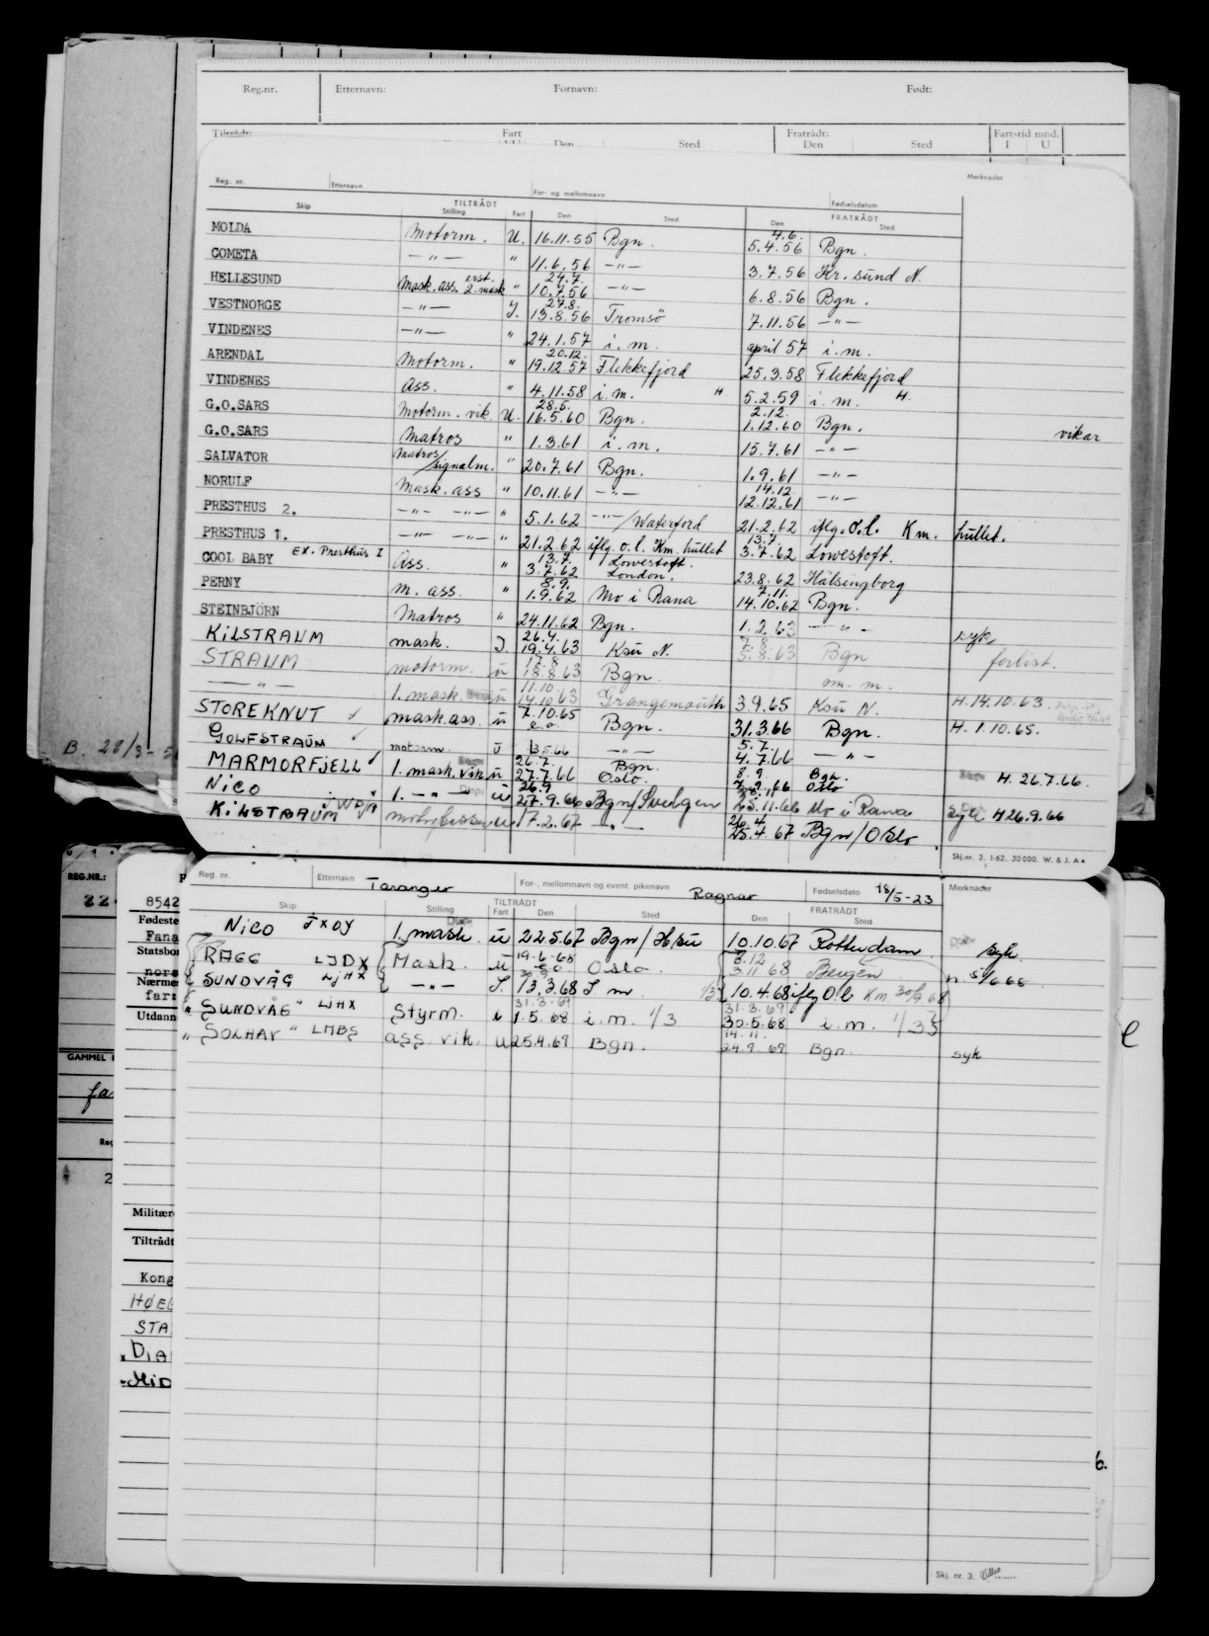 Reg.nr. Etternavn: Fornavn: Født:
Fart Den Sted Fratrådt: Den Sted Fartstid mnd. I U
Reg. nr. Etternavn For- og mellomnavn Fødselsdatum Merknader
Skip TILTRÅDT Stilling Fart Den Sted FRATRÅDT Den Sted
MOLDA Motorm. U. 16.11.55 Bgn. 4.6. 5.4.56 Bgn.
COMETA —"— " 11.6.56 —"— 3.7.56 Kr. sund N.
HELLESUND Mask. ass. erst. 2. mask " 24.7. 10.7.56 —"— 6.8.56 Bgn.
VESTNORGE —"— I. 27.8. 13.8.56 Tromsö 7.11.56 —"—
VINDENES —"— " 24.1.57 i. m. april 57 i. m.
ARENDAL Motorm. " 20.12. 19.12.57 Flekkefjord 25.3.58 Flekkefjord
VINDENES Ass. " 4.11.58 i. m. H 5.2.59 i. m. H.
G.O.SARS Motorm. vik. U. 28.5. 16.5.60 Bgn. 2.12. 1.12.60 Bgn. vikar
G.O.SARS Matros " 1.3.61 i. m. 15.7.61 —"—
SALVATOR Matros/signalm. " 20.7.61 Bgn. 1.9.61 —"—
NORULF Mask. ass " 10.11.61 —"— 14.12. 12.12.61 —"—
PRESTHUS 2. —"— —"— " 5.1.62 —"—/Waterford 21.2.62 iflg. o.l. Km. hullet.
PRESTHUS 1. —"— —"— " 21.2.62 iflg. o.l. Km. hullet 13.7. 3.7.62 Lowestoft.
COOL BABY EX. Presthus I Ass. " 13.7. 3.7.62 Lowestoft. London. 23.8.62 Hälsingborg
PERNY m. ass. " 8.9. 1.9.62 Mo i Rana 7.11. 14.10.62 Bgn.
STEINBJÖRN Matros " 24.11.62 Bgn. 1.2.63 —"— syk
KILSTRAUM mask. I 26.4. 19.4.63 Ksu N. 7.8 5.8.63 Bgn forlist.
STRAUM motorm. u 17.8 18.8.63 Bgn. om. m.
—"— 1. mask. u 11.10. 14.10.63 Grangemouth 3.9.65 Ksu N. H.14.10.63.
STOREKNUT mask.ass. u 7.10.65 e.o. Bgn. 31.3.66 Bgn. H. 1.10.65.
GOLFSTRAUM motorm. u 13.5.66 —"— 5.7. 4.7.66 —"—
MARMORFJELL 1. mask. vik u 26.7. 27.7.66 Bgn. Oslo. 8.9. 7.9.66 Bgn. Oslo H. 26.7.66.
NICO 1. —"— u 26.9 27.9.66 Bgn/Svelgen 25.11.66 Mo i Rana syk H 26.9.66
KILSTRAUM u 17.2.67 —"— 26.4 25.4 67 Bgn/Oslo.
B. 28/3-5
Skj.nr. 3. 1-62. 30 000. W. & J. A.
Reg. nr. Etternavn Taranger For-, mellomnavn og event. pikenavn Ragnar Fødselsdato 18/5-23 Merknader
Skip Stilling TILTRÅDT Fart Den Sted FRATRÅDT Den Sted
NICO JXOY 1. mask. u 22.5.67 Bgn/Hsu 10.10.67 Rotterdam. syk
RAGG LJDX Mask. u 19.6.68 e.o Oslo 8.12 3.11.68 Bergen
SUNDVÅG LJHX —"— I. 13.3.68 I m 1/3 10.4.68 iflg O.b Km 30/9 68
"SUNDVÅG" LJHX Styrm. i 31.3.69 1.5.68 i. m. 1/3 31.3.69 30.5.68 i. m. 1/3
"SOLHAV" LMBS ass. vik. u 25.4.69 Bgn. 14.11. 24.9.69 Bgn. syk
REG.NR.:
8542
Fødeste
Fana
Statsbor
nors
Nærmes
far:
Utdann
GAMMEL
fa
Militær
Tiltrådt
Kong
HØEG
STA
DIA
MID
Skj. nr. 3.